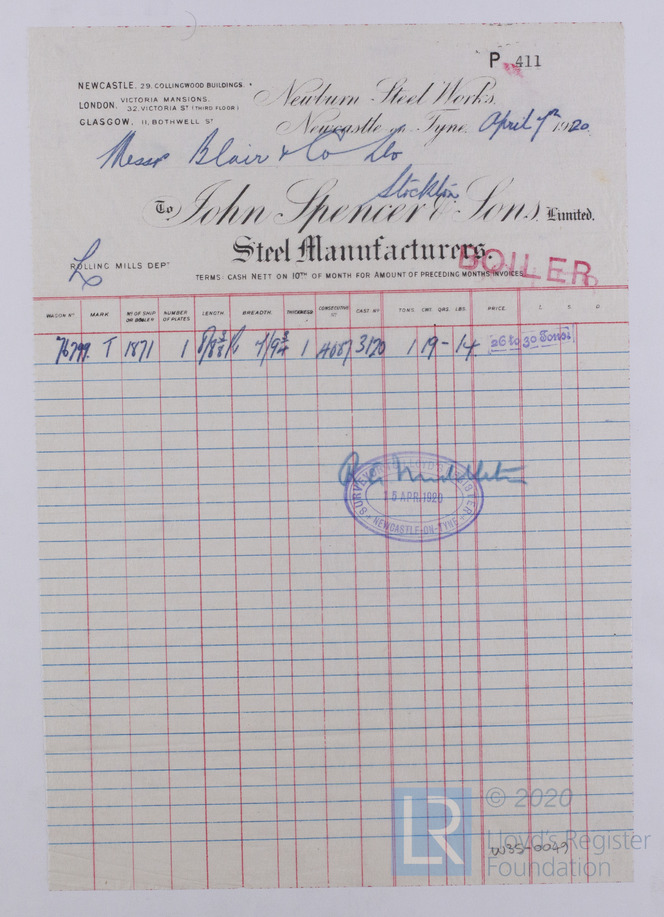 P 411
NEWCASTLE, 29, COLLINGWOOD BUILDINGS.
LONDON, VICTORIA MANSIONS, 32, VICTORIA ST (THIRD FLOOR)
GLASGOW, 11, BOTHWELL ST
Newburn Steel Works,
Newcastle on Tyne, April 7th 1920
Messrs Blair & Co Ldo
Stockton
To John Spencer & Sons, Limited.
Steel Manufacturers.
BOILER
ROLLING MILLS DEPT
TERMS: CASH NETT ON 10TH OF MONTH FOR AMOUNT OF PRECEDING MONTHS INVOICES
WAGON NO MARK NO OF SHIP OR BOILER NUMBER OF PLATES LENGTH BREADTH THICKNESS CONSECUTIVE NO CAST NO TONS CWT QRS LBS PRICE £ S D
76799 T 1871 1 1 3120 1 19 - 14 26 to 30 Tons
SURVEYOR TO LLOYD'S REGISTER
15 APR 1920
NEWCASTLE-ON-TYNE
LR
© 2020
Lloyd's Register
Foundation
W35-0049